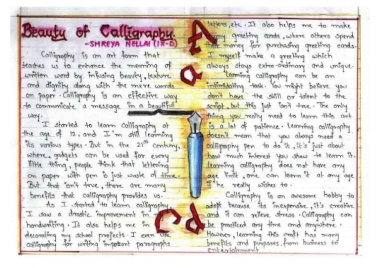 Beauty of Calligraphy
-SHREYA NELLAI (IX-D)
Calligraphy is an art form that
teaches us to enhance the meaning of
written word by infusing beauty, texture,
and dignity along with the mere words
on paper. Calligraphy is an effective way
to communicate a message in a beautiful
way.
I started to learn calligraphy at
the age of 12, and I'm still learning
its various types. But in the 21st century,
where gadgets can be used for every
little thing, people think that lettering
on paper with pen is just waste of time.
But that isn't true, there are many
benefits that calligraphy provides us.
As I started to learn calligraphy,
I saw a drastic improvement in
handwriting. It also helps me in
decorating my school projects. I even use
calligraphy for writing important paragraphs
letters, etc. It also helps me to make
greeting cards, where others spend
their money for purchasing greeting cards.
I myself make a greeting which
always stays extra-ordinary and unique.
Learning calligraphy can be an
intimidating task. You might believe you
don't have the skill or talent to the
script, but this just isn't true. The only
thing you really need to learn this art
is a lot of patience. Learning calligraphy
doesn't mean that you always need a
calligraphy pen to do it, it's just about
how much interest you show to learn it.
Learning calligraphy does not have any
age limit, one can learn it at any age
if he really wishes to.
Calligraphy is an awesome hobby to
adopt because its inexpensive, it's creative
and it can relieve stress. Calligraphy can
be practiced any time and anywhere.
However, learning this craft has many
benefits and purposes, from business to
entertainment.